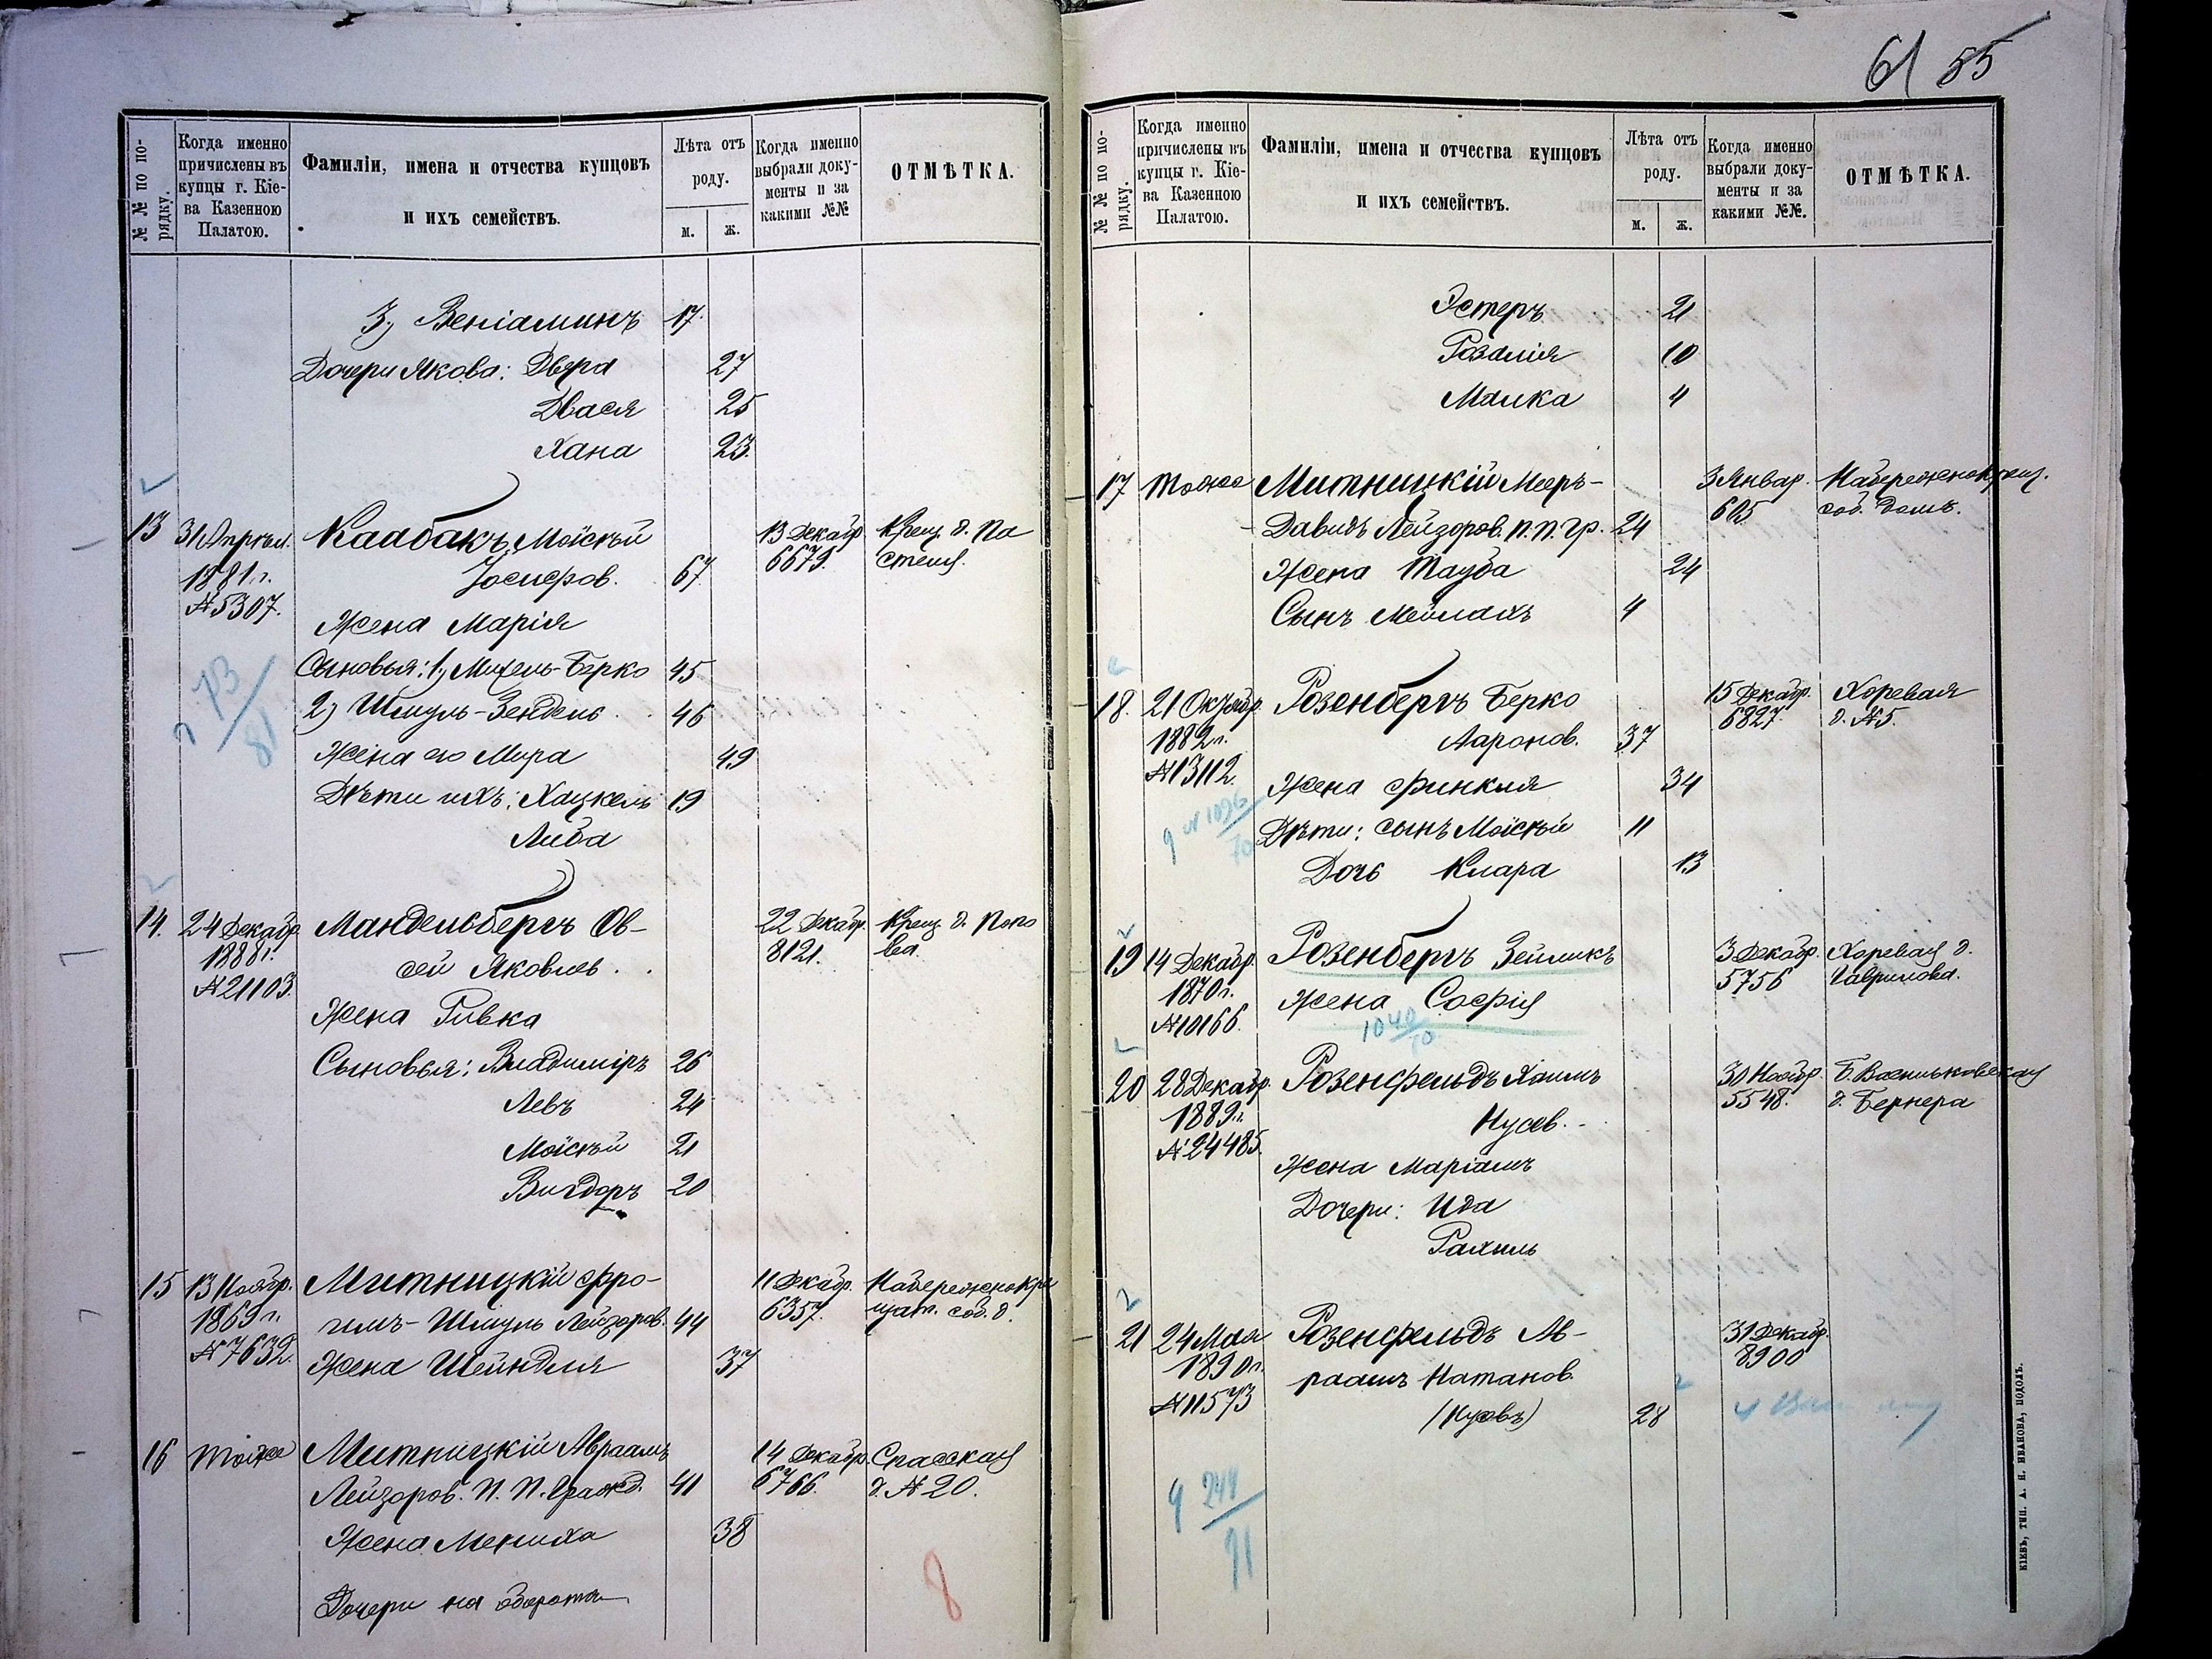 61 55
№ № по порядку.
Когда именно причислены въ купцы г. Кіева Казенною Палатою.
Фамиліи, имена и отчества купцовъ и ихъ семействъ.
Лѣта отъ роду.
м. ж.
Когда именно выбрали документы и за какими №№
ОТМѢТКА.
3) Веніаминъ 17
Дочери Якова: Двера 27
Двася 25
Хана 23
13 31 Апрѣл. Каабакъ Моисѣй 13 Декабр. Крещ. д. Па
1881 г. Іосифов. 67 6679. стеля.
№ 5307.
Жена Марія
Сыновья: 1) Михель-Берко 45
2) Шмуль-Зендель 46
73/81
Жена его Мира 49
Дѣти ихъ: Хацкель 19
Либа
14. 24 Декабр. Мандельбергъ Ов- 22 Декабр. Крещ. д. Попо
1888 г. сей Яковлев. 8121. ва
№ 21103.
Жена Ривка
Сыновья: Владиміръ 26
Левъ 24
Моисѣй 21
Вигдоръ 20
15 13 Ноябр. Митницкій Фро- 11 Декабр. Набережнокре
1869 г. имъ-Шмуль Лейзоров. 44 6357. щат. соб. д.
№ 7632. Жена Шейндля 37
16 Тоже Митницкій Авраамъ 14 Декабр. Спасская
Лейзоров. П. П. Гражд. 41 6766. д. № 20.
Жена Мениха 38
Дочери на обороте
8
№ № по порядку.
Когда именно причислены въ купцы г. Кіева Казенною Палатою.
Фамиліи, имена и отчества купцовъ и ихъ семействъ.
Лѣта отъ роду.
м. ж.
Когда именно выбрали документы и за какими №№.
ОТМѢТКА.
Эстеръ 21
Розалія 10
Малка 4
17 Тоже Митницкій Мееръ- 3 Январ. Набережнокрещ.
Давидъ Лейзоров. П. П. Гр. 24 605 соб. домъ.
Жена Тауба 24
Сынъ Мейлахъ 4
18. 21 Октябр. Розенбергъ Берко 15 Декабр. Хоревая
1882 г. Ааронов. 37 6827. д. № 5.
№ 13112.
Жена Финкля 34
№ 1096/70
Дѣти: сынъ Моисѣй 11
Дочь Клара 13
19 14 Декабр. Розенбергъ Зейликъ 3 Декабр. Хоревая д.
1870 г. Жена Софія 5756 Гаврилова.
№ 10166.
1040/70
20 28 Декабр. Розенфельдъ Хаимъ 30 Ноябр. Б. Васильковская
1889 г. Нусев. 5548. д. Бернера
№ 24485.
Жена Маріамъ
Дочери: Ида
Рахиль
21 24 Мая Розенфельдъ Ав- 31 Декабр.
1890 г. раамъ Натанов. 8900
№ 11573 (Нусовъ) 28
244/91
КІЕВЪ, ТИП. А. Н. ИВАНОВА, ПОДОЛЪ.